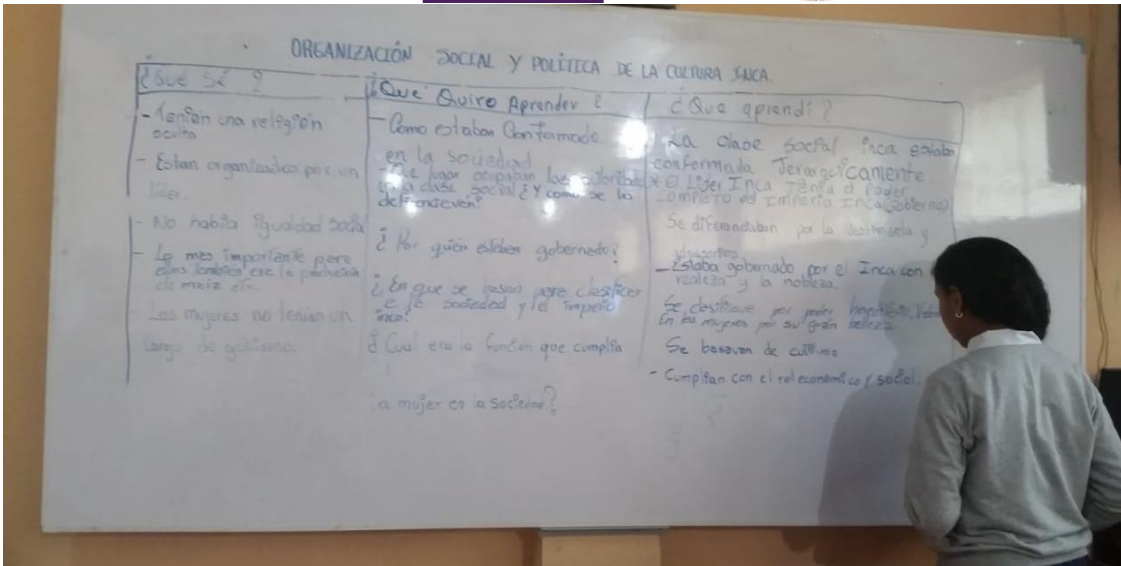 ORGANIZACIÓN SOCIAL Y POLÍTICA DE LA CULTURA INCA
¿Qué Sé ?
- Tenían una religión
oculta
- Estan organizados por un
lider.
- No había igualdad social
- Lo mas importante para
ellos también era la producción
de maíz etc.
- Las mujeres no tenian un
Cargo de gobierno
¿Que Quiro Aprender ?
- Como estaban Conformado
en la sociedad
- Que lugar ocupaban las
en la clase social ¿ y como se lo
¿ Por quién gobernado?
¿ En que se para clasificar
a la sociedad y el imperio
inca?
¿ Cual era la función que cumplía
la mujer en la sociedad?
¿ Que aprendi ?
La clase social inca estaba
conformada Jerarquicamente
* El Lider Inca Tenía el Poder
Completo del Imperio Inca (Gobierno)
Se diferenciaban por la vestimenta y
- Estaba gobernado por el Inca con
realeza y la nobleza.
Se por poder
En las mujeres por su gran belleza
Se basavan de
- Cumplían con el rol económico y social.